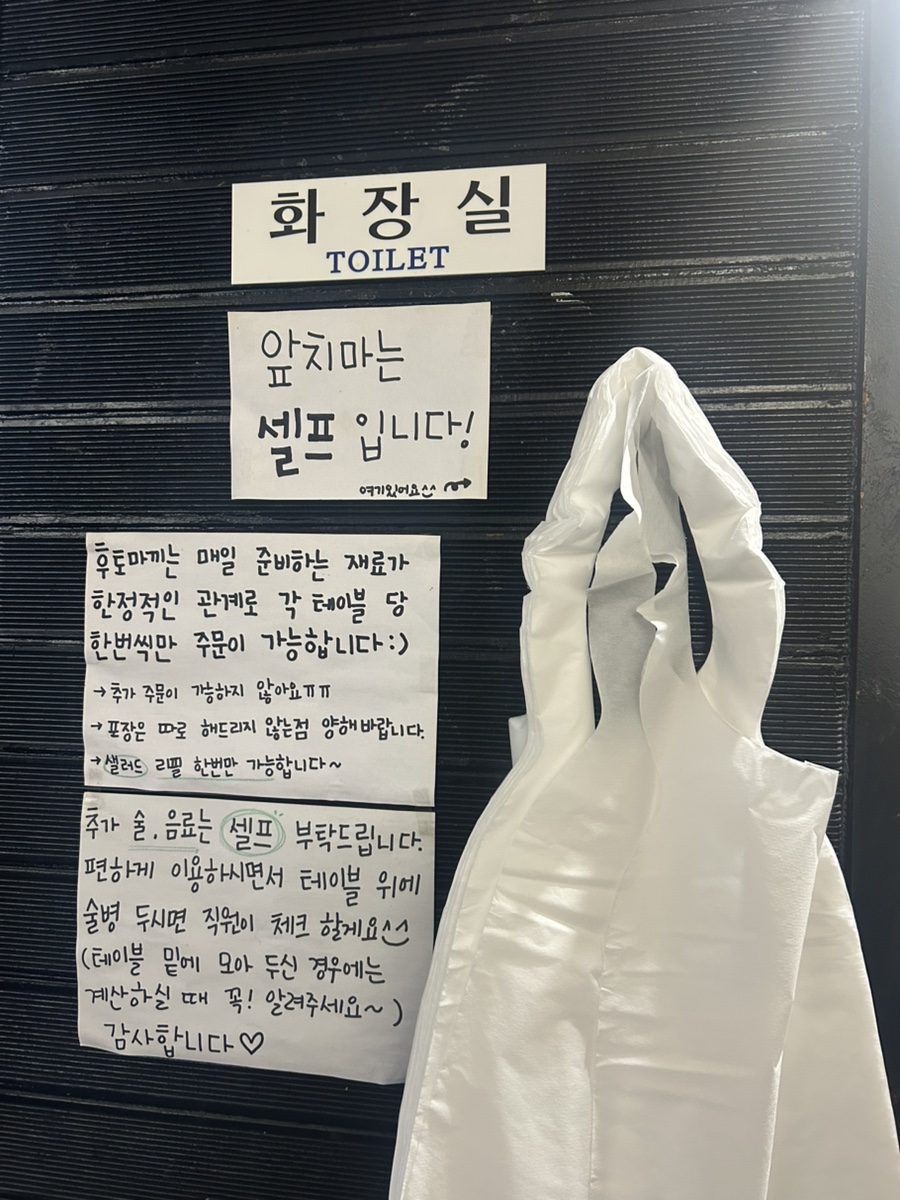 화장실
TOILET
앞치마는
셀프 입니다!
여기있어요^^
후토마끼는 매일 준비하는 재료가
한정적인 관계로 각 테이블 당
한번씩만 주문이 가능합니다:)
→추가 주문이 가능하지 않아요ㅠㅠ
→포장은 따로 해드리지 않는점 양해바랍니다.
→샐러드 리필 한번만 가능합니다~
추가 술, 음료는 셀프 부탁드립니다.
편하게 이용하시면서 테이블 위에
술병 두시면 직원이 체크 할게요^^
(테이블 밑에 모아 두신 경우에는
계산하실 때 꼭! 알려주세요~)
감사합니다♡